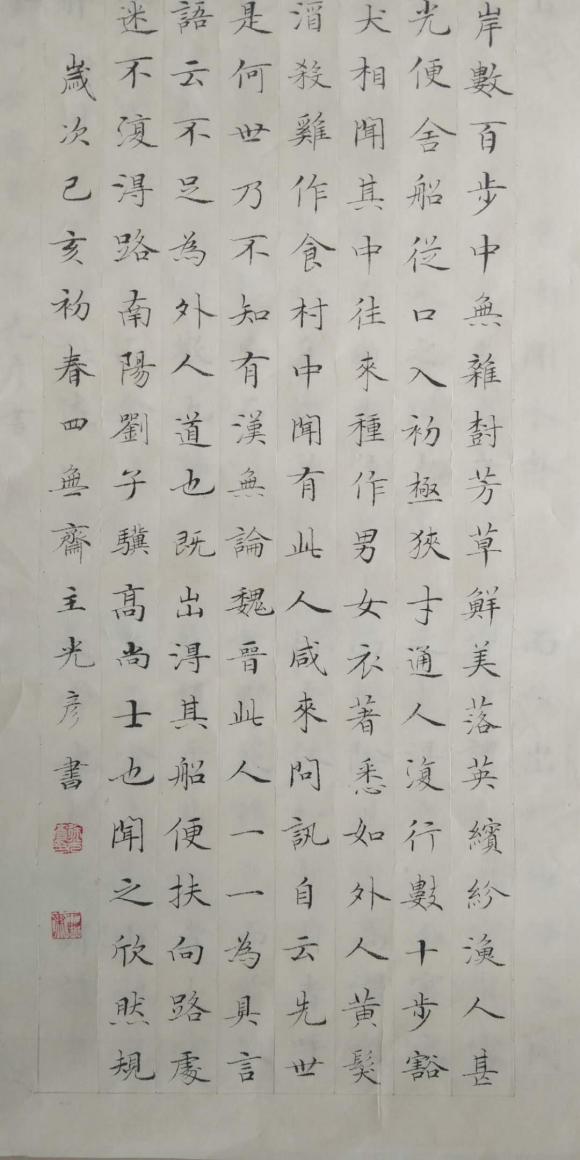 岸數百步中無雜樹芳草鮮美落英繽紛漁人甚
光便舍船從口入初極狹才通人復行數十步豁
犬相聞其中往來種作男女衣著悉如外人黄髮
殺雞作食村中聞有此人咸來問訊自云先世
是何世乃不知有漢無論魏晉此人一一為具言
語云不足為外人道也既出得其船便扶向路處
迷不復得路南陽劉子驥高尚士也聞之欣然規
歲次己亥初春四無齋主光彦書